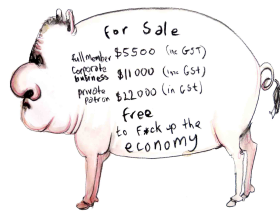 For Sale
full member $5500 (inc GST)
Corporate business $11000 (inc GST)
private patron $22000 (in GST)
free
to F*ck up the
economy